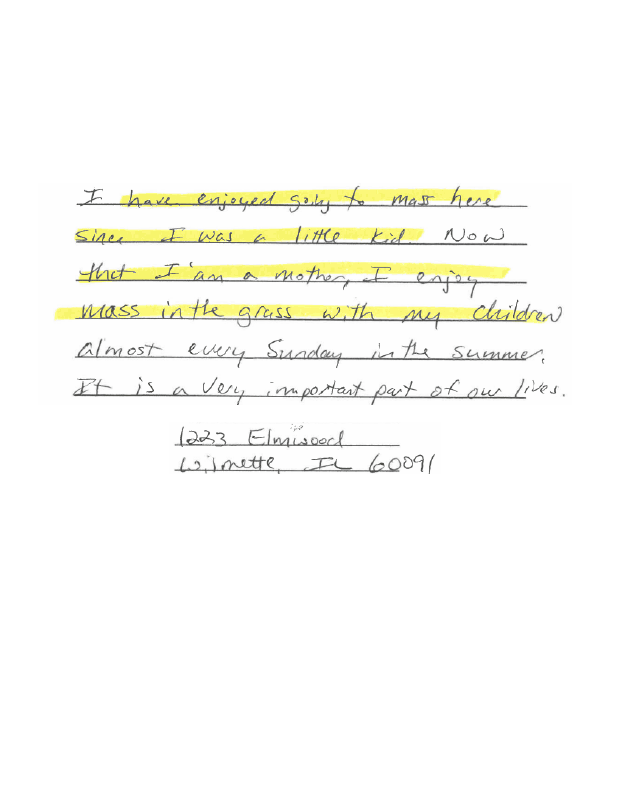 I have enjoyed going to mass here
since I was a little kid. Now
that I am a mother, I enjoy
mass in the grass with my children
almost every Sunday in the summer.
It is a very important part of our lives.
1223 Elmwood
Wilmette, IL 60091